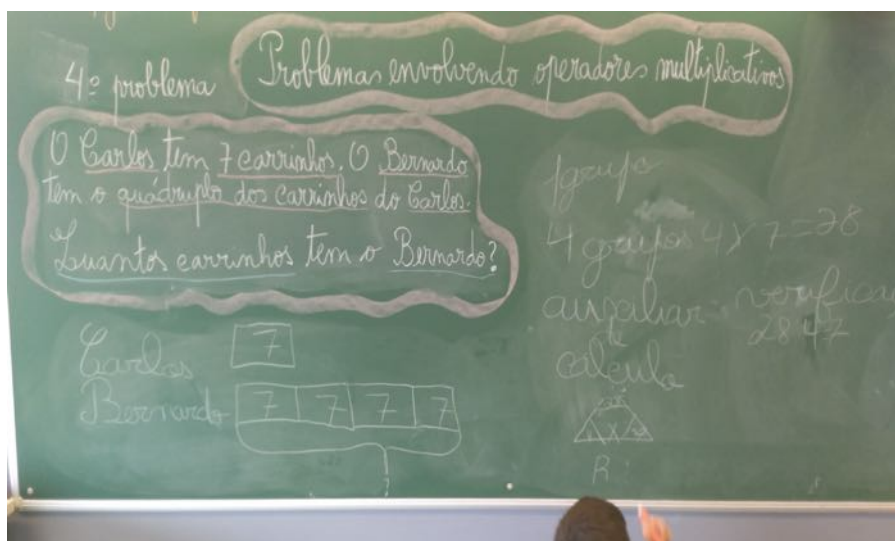 4º problema
Problemas envolvendo operadores multiplicativos
O Carlos tem 7 carrinhos. O Bernardo
tem o quádruplo dos carrinhos do Carlos.
Quantos carrinhos tem o Bernardo?
Carlos 7
Bernardo 7 7 7 7
1 grupo
4 grupos 4 x 7 = 28
auxiliar
de
cálculo
verifica
R: